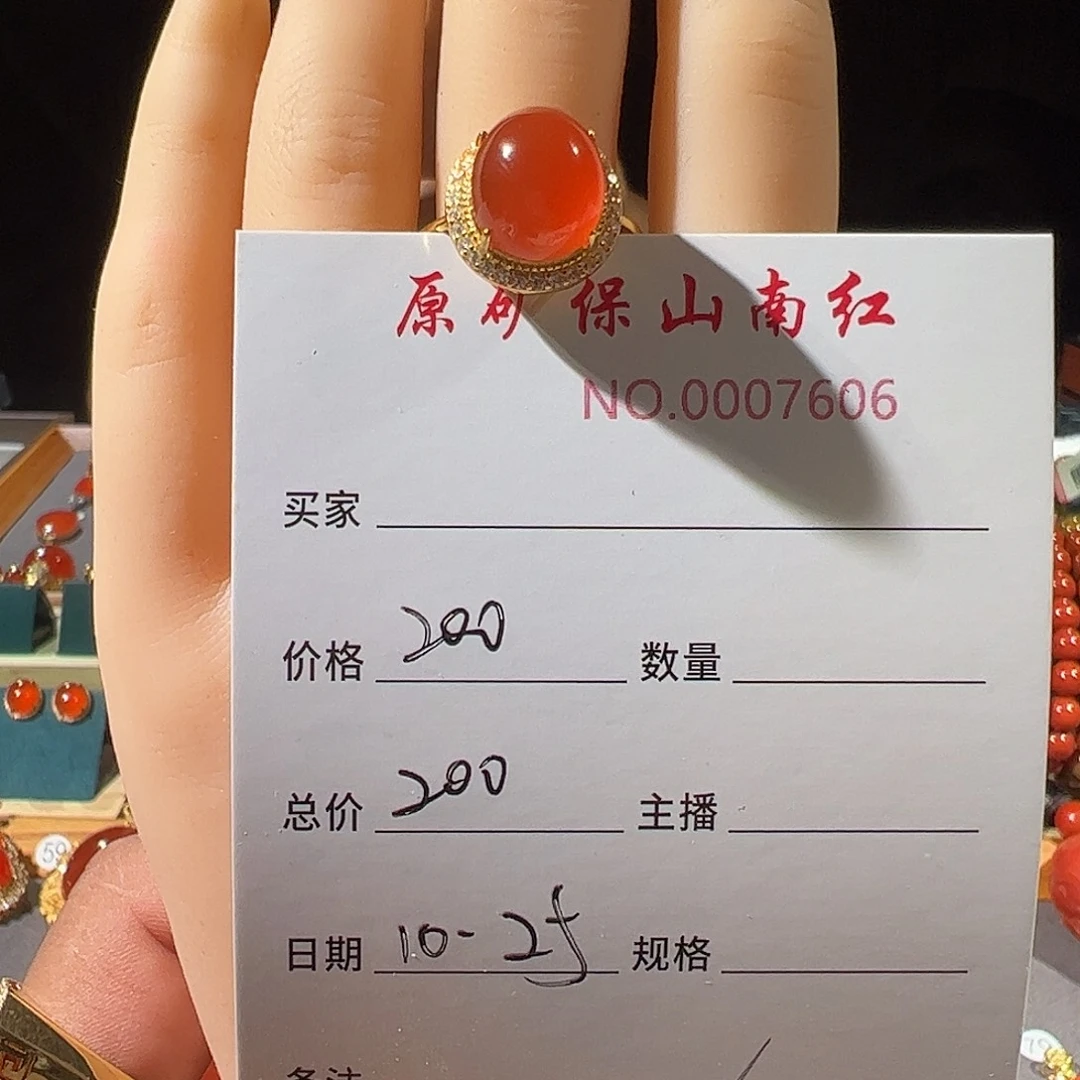 原矿保山南红
NO.0007606
买家
价格 200 数量
总价 200 主播
日期 10-25 规格
备注
59